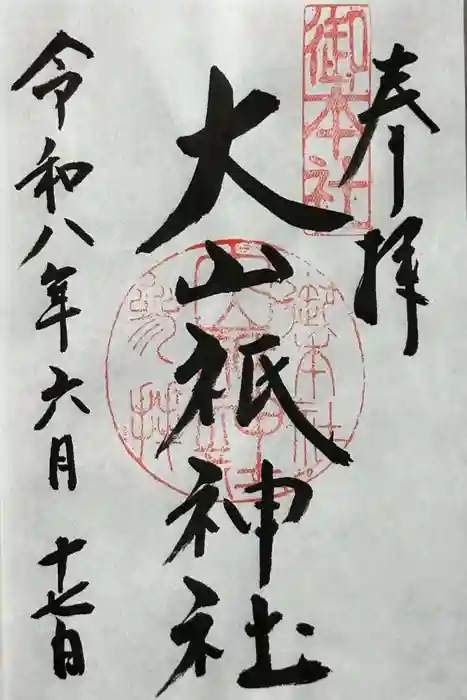 奉拝
御本社
大山祇神社
令和八年六月十七日